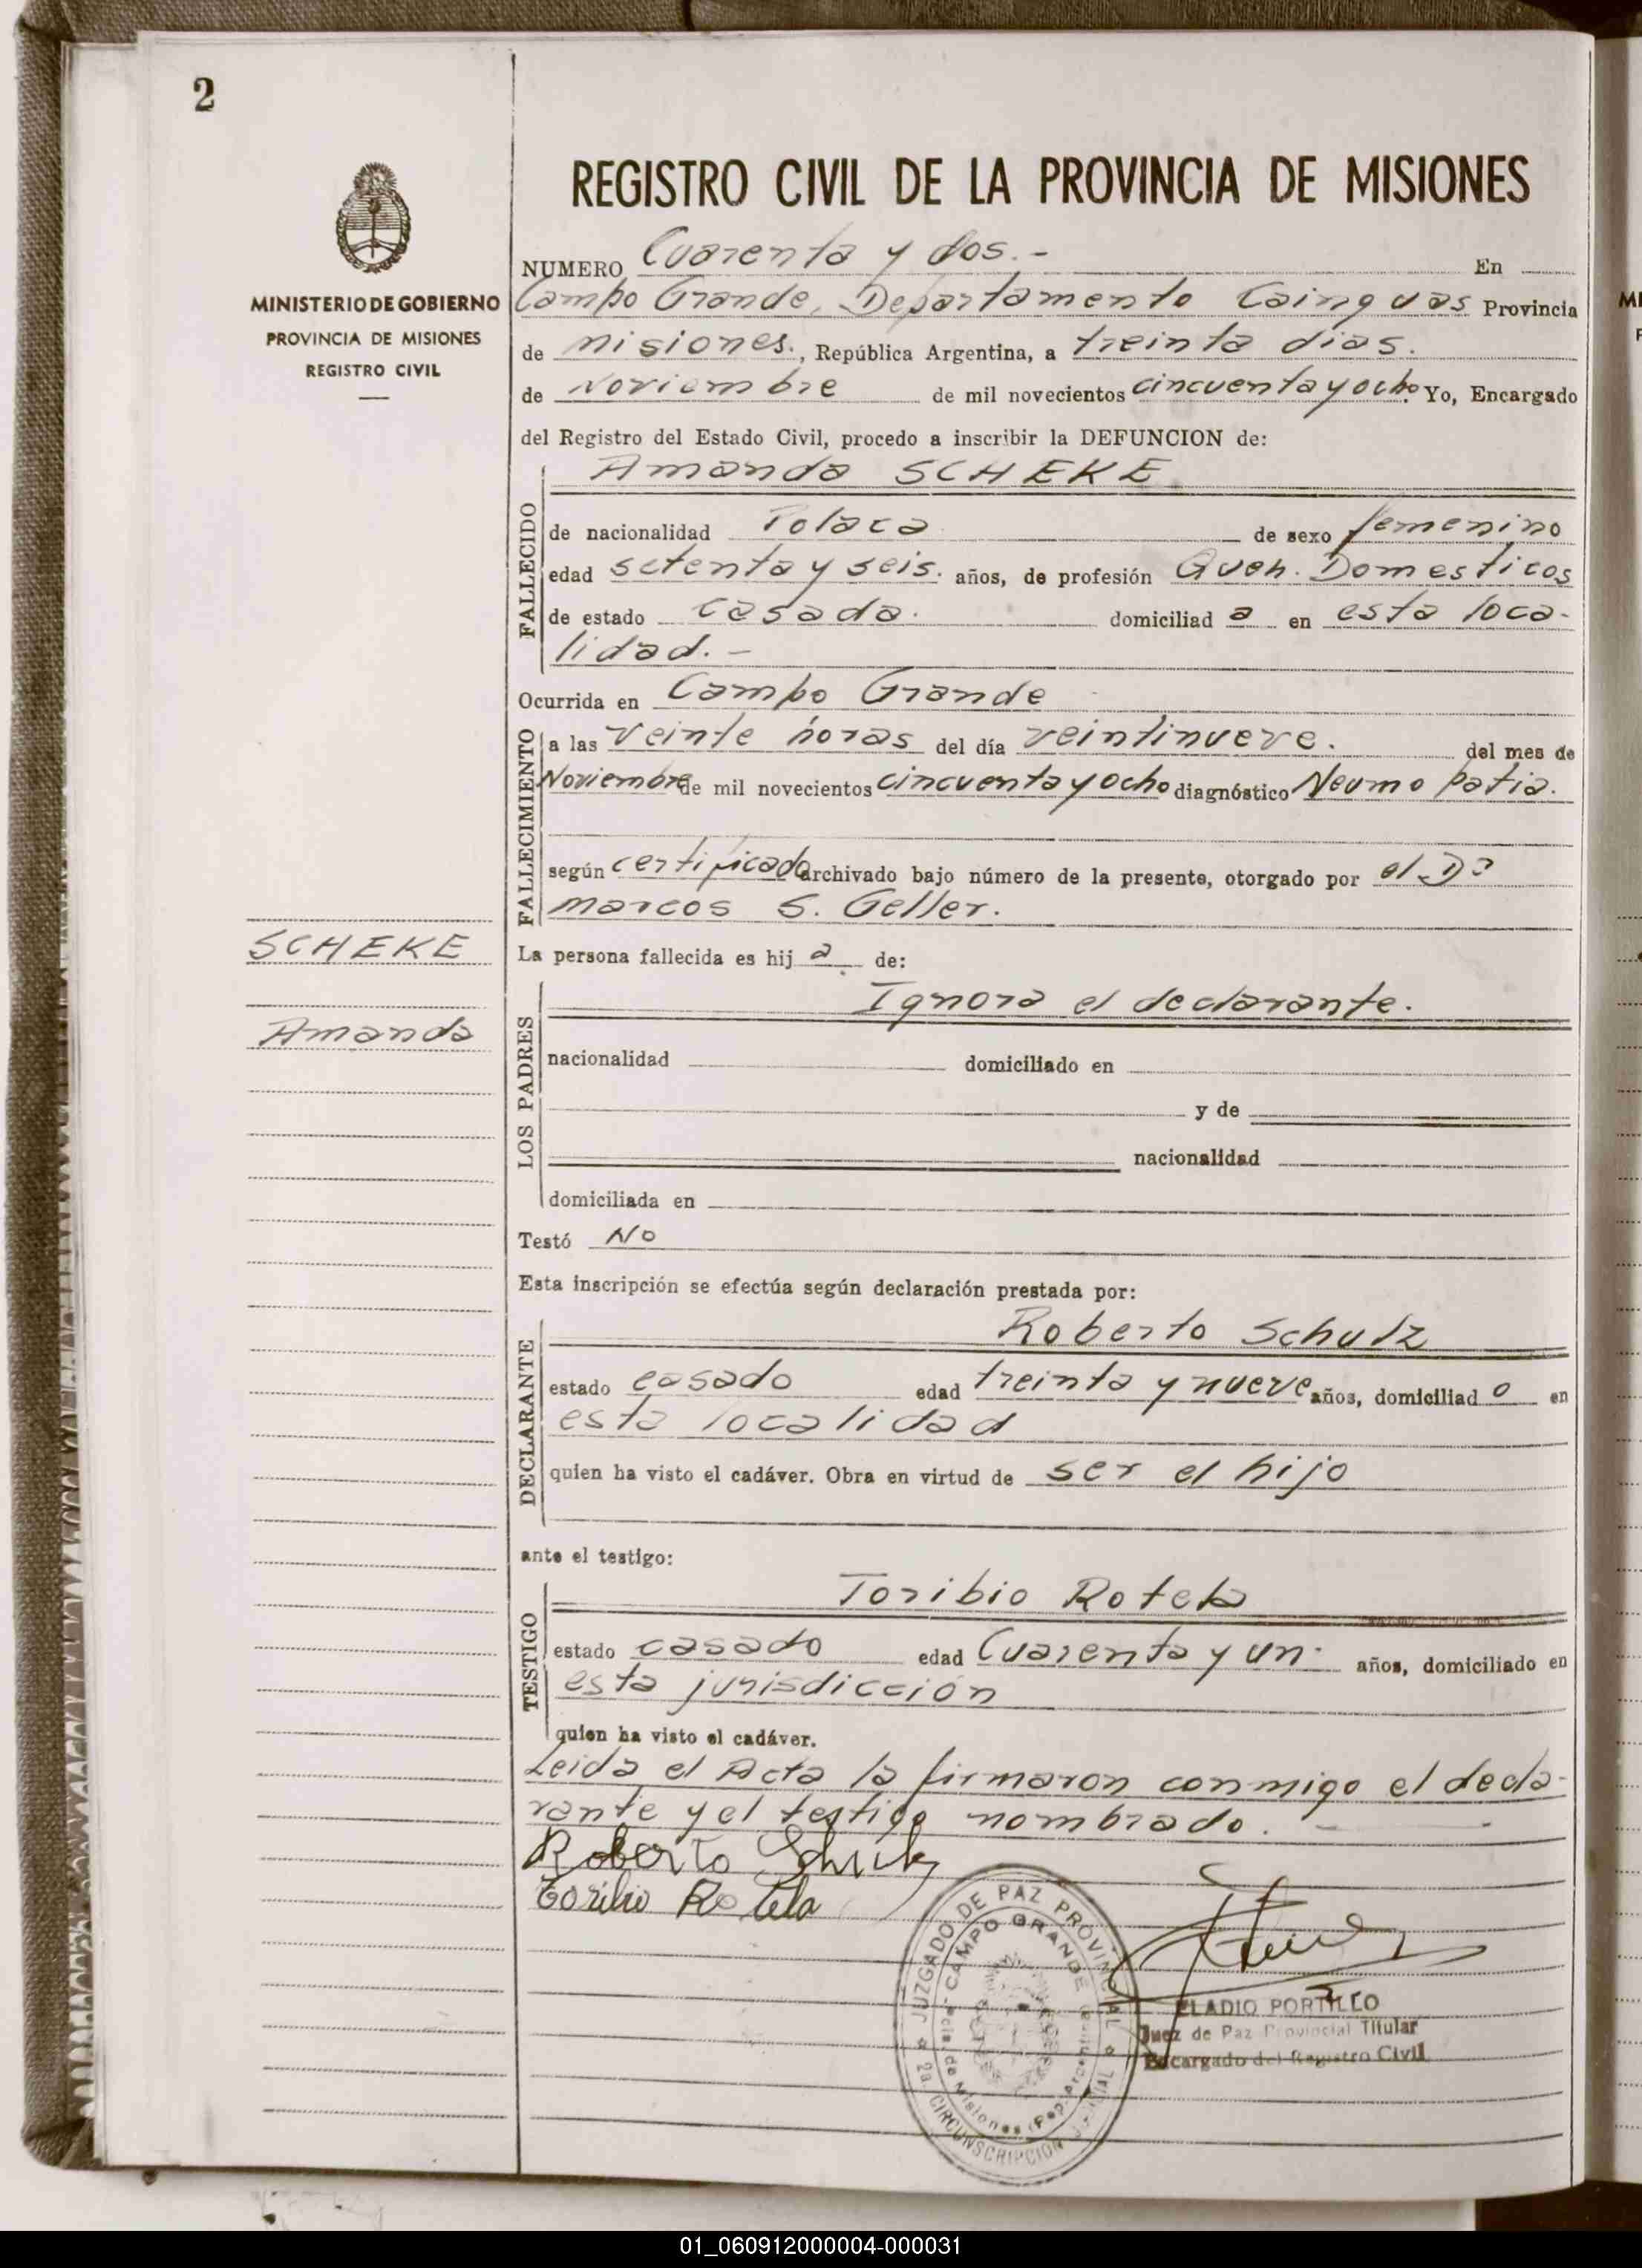 2
MINISTERIO DE GOBIERNO
PROVINCIA DE MISIONES
REGISTRO CIVIL
SCHEKE
Amanda
REGISTRO CIVIL DE LA PROVINCIA DE MISIONES
NUMERO Cuarenta y dos.- En
Campo Grande, Departamento Cainguas Provincia
de Misiones., República Argentina, a treinta dias.
de Noviembre de mil novecientos cincuenta y ocho. Yo, Encargado
del Registro del Estado Civil, procedo a inscribir la DEFUNCION de:
Amanda SCHEKE
FALLECIDO
de nacionalidad Polaca de sexo femenino
edad setenta y seis. años, de profesión Queh. Domesticos
de estado casada. domiciliad a en esta loca-
lidad.-
Ocurrida en Campo Grande
FALLECIMIENTO
a las veinte horas del día veintinueve. del mes de
Noviembre de mil novecientos cincuenta y ocho diagnóstico Neumopatia.
según certificado archivado bajo número de la presente, otorgado por el Dr
Marcos S. Geller.
La persona fallecida es hij a de:
LOS PADRES
Ignora el declarante.
nacionalidad domiciliado en
y de
nacionalidad
domiciliada en
Testó No
Esta inscripción se efectúa según declaración prestada por:
DECLARANTE
Roberto Schulz
estado casado edad treinta y nueve años, domiciliad o en
esta localidad
quien ha visto el cadáver. Obra en virtud de ser el hijo
ante el testigo:
TESTIGO
Toribio Rotela
estado casado edad Cuarenta y un. años, domiciliado en
esta jurisdicción
quien ha visto el cadáver.
Leida el Acta la firmaron conmigo el decla-
rante y el testigo nombrado.-
Roberto Schulz
Toribio Rotela
JUZGADO DE PAZ PROVINCIAL
CAMPO GRANDE
de Misiones (Rep. Argentina)
2a. CIRCUNSCRIPCION JUDICIAL
ELADIO PORTILLO
Juez de Paz Provincial Titular
Encargado del Registro Civil
01_060912000004-000031